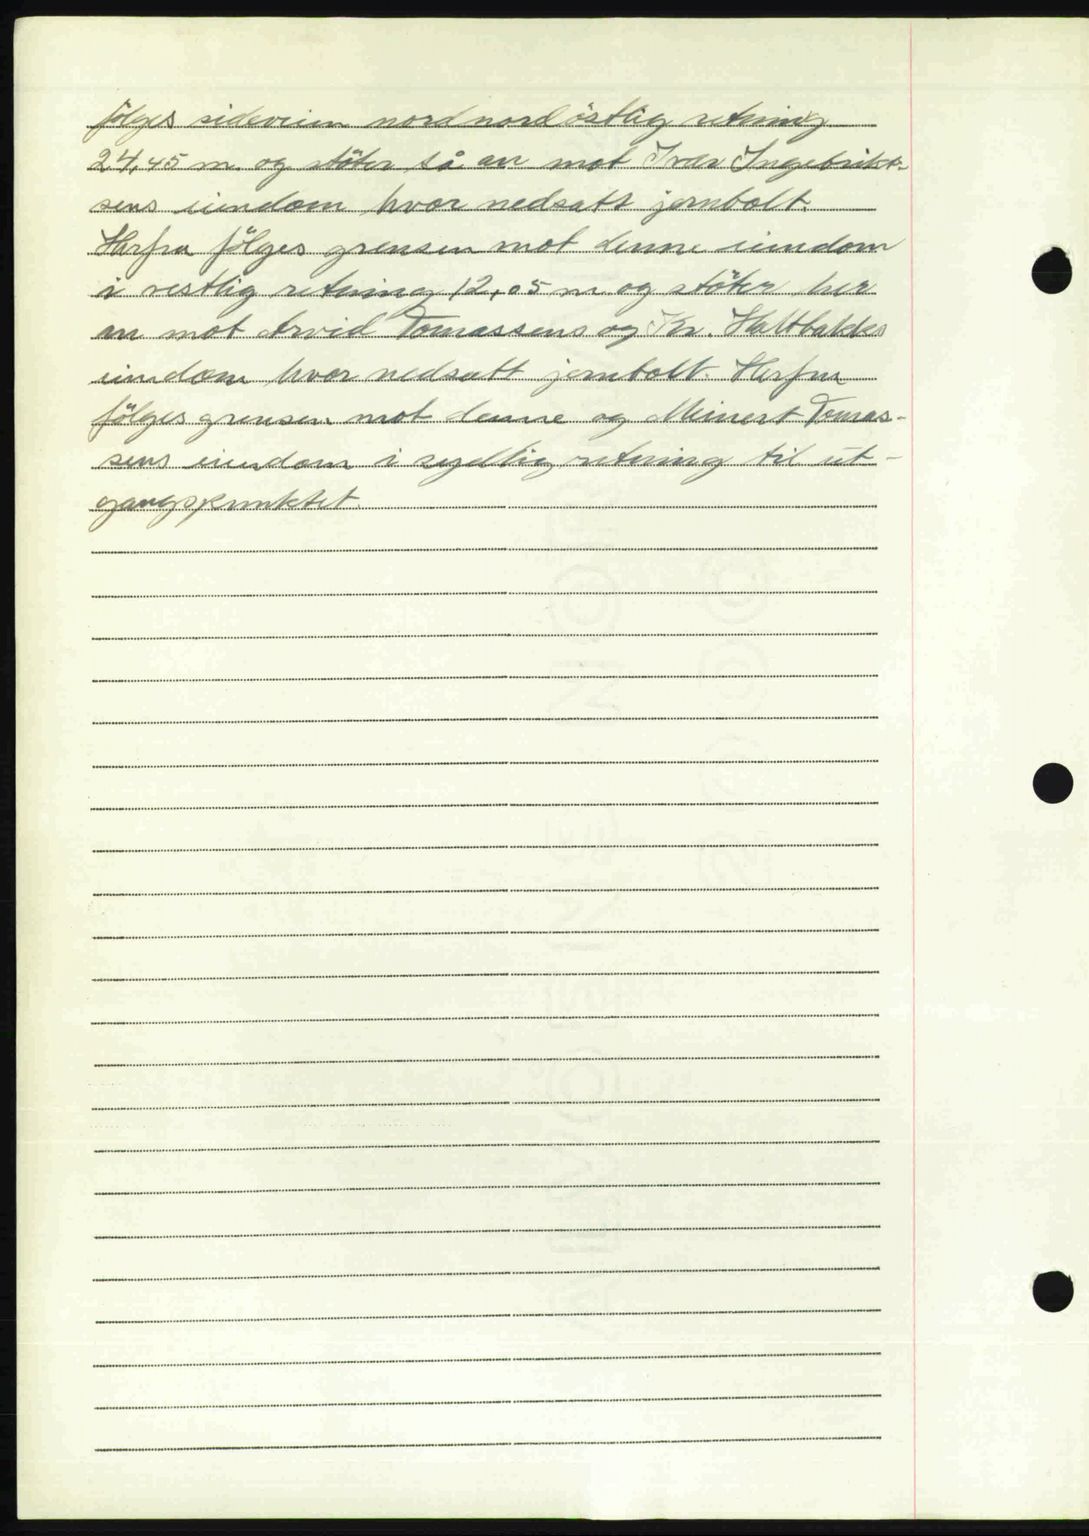 følges sideveien nordnordöstlig retning
24,45 m og stöter så an mot Ivar Ingebrikt-
sens eiendom hvor nedsatt jernbolt.
Herfra fölges grensen mot denne eiendom
i vestlig retning 12,05 m og stöter her
an mot Arvid Tomassens og Kr. Haltbakks
eiendom hvor nedsatt jernbolt. Herfra
fölges grensen mot denne og Meinert Tomas-
sens eiendom i sydlig retning til ut-
gangspunktet.